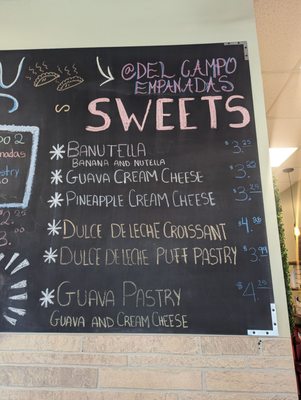 @DEL CAMPO
EMPANADAS
SWEETS
* BANUTELLA
BANANA AND NUTELLA
* GUAVA CREAM CHEESE
* PINEAPPLE CREAM CHEESE
* DULCE DE LECHE CROISSANT
* DULCE DE LECHE PUFF PASTRY $3.99
* GUAVA PASTRY
GUAVA AND CREAM CHEESE